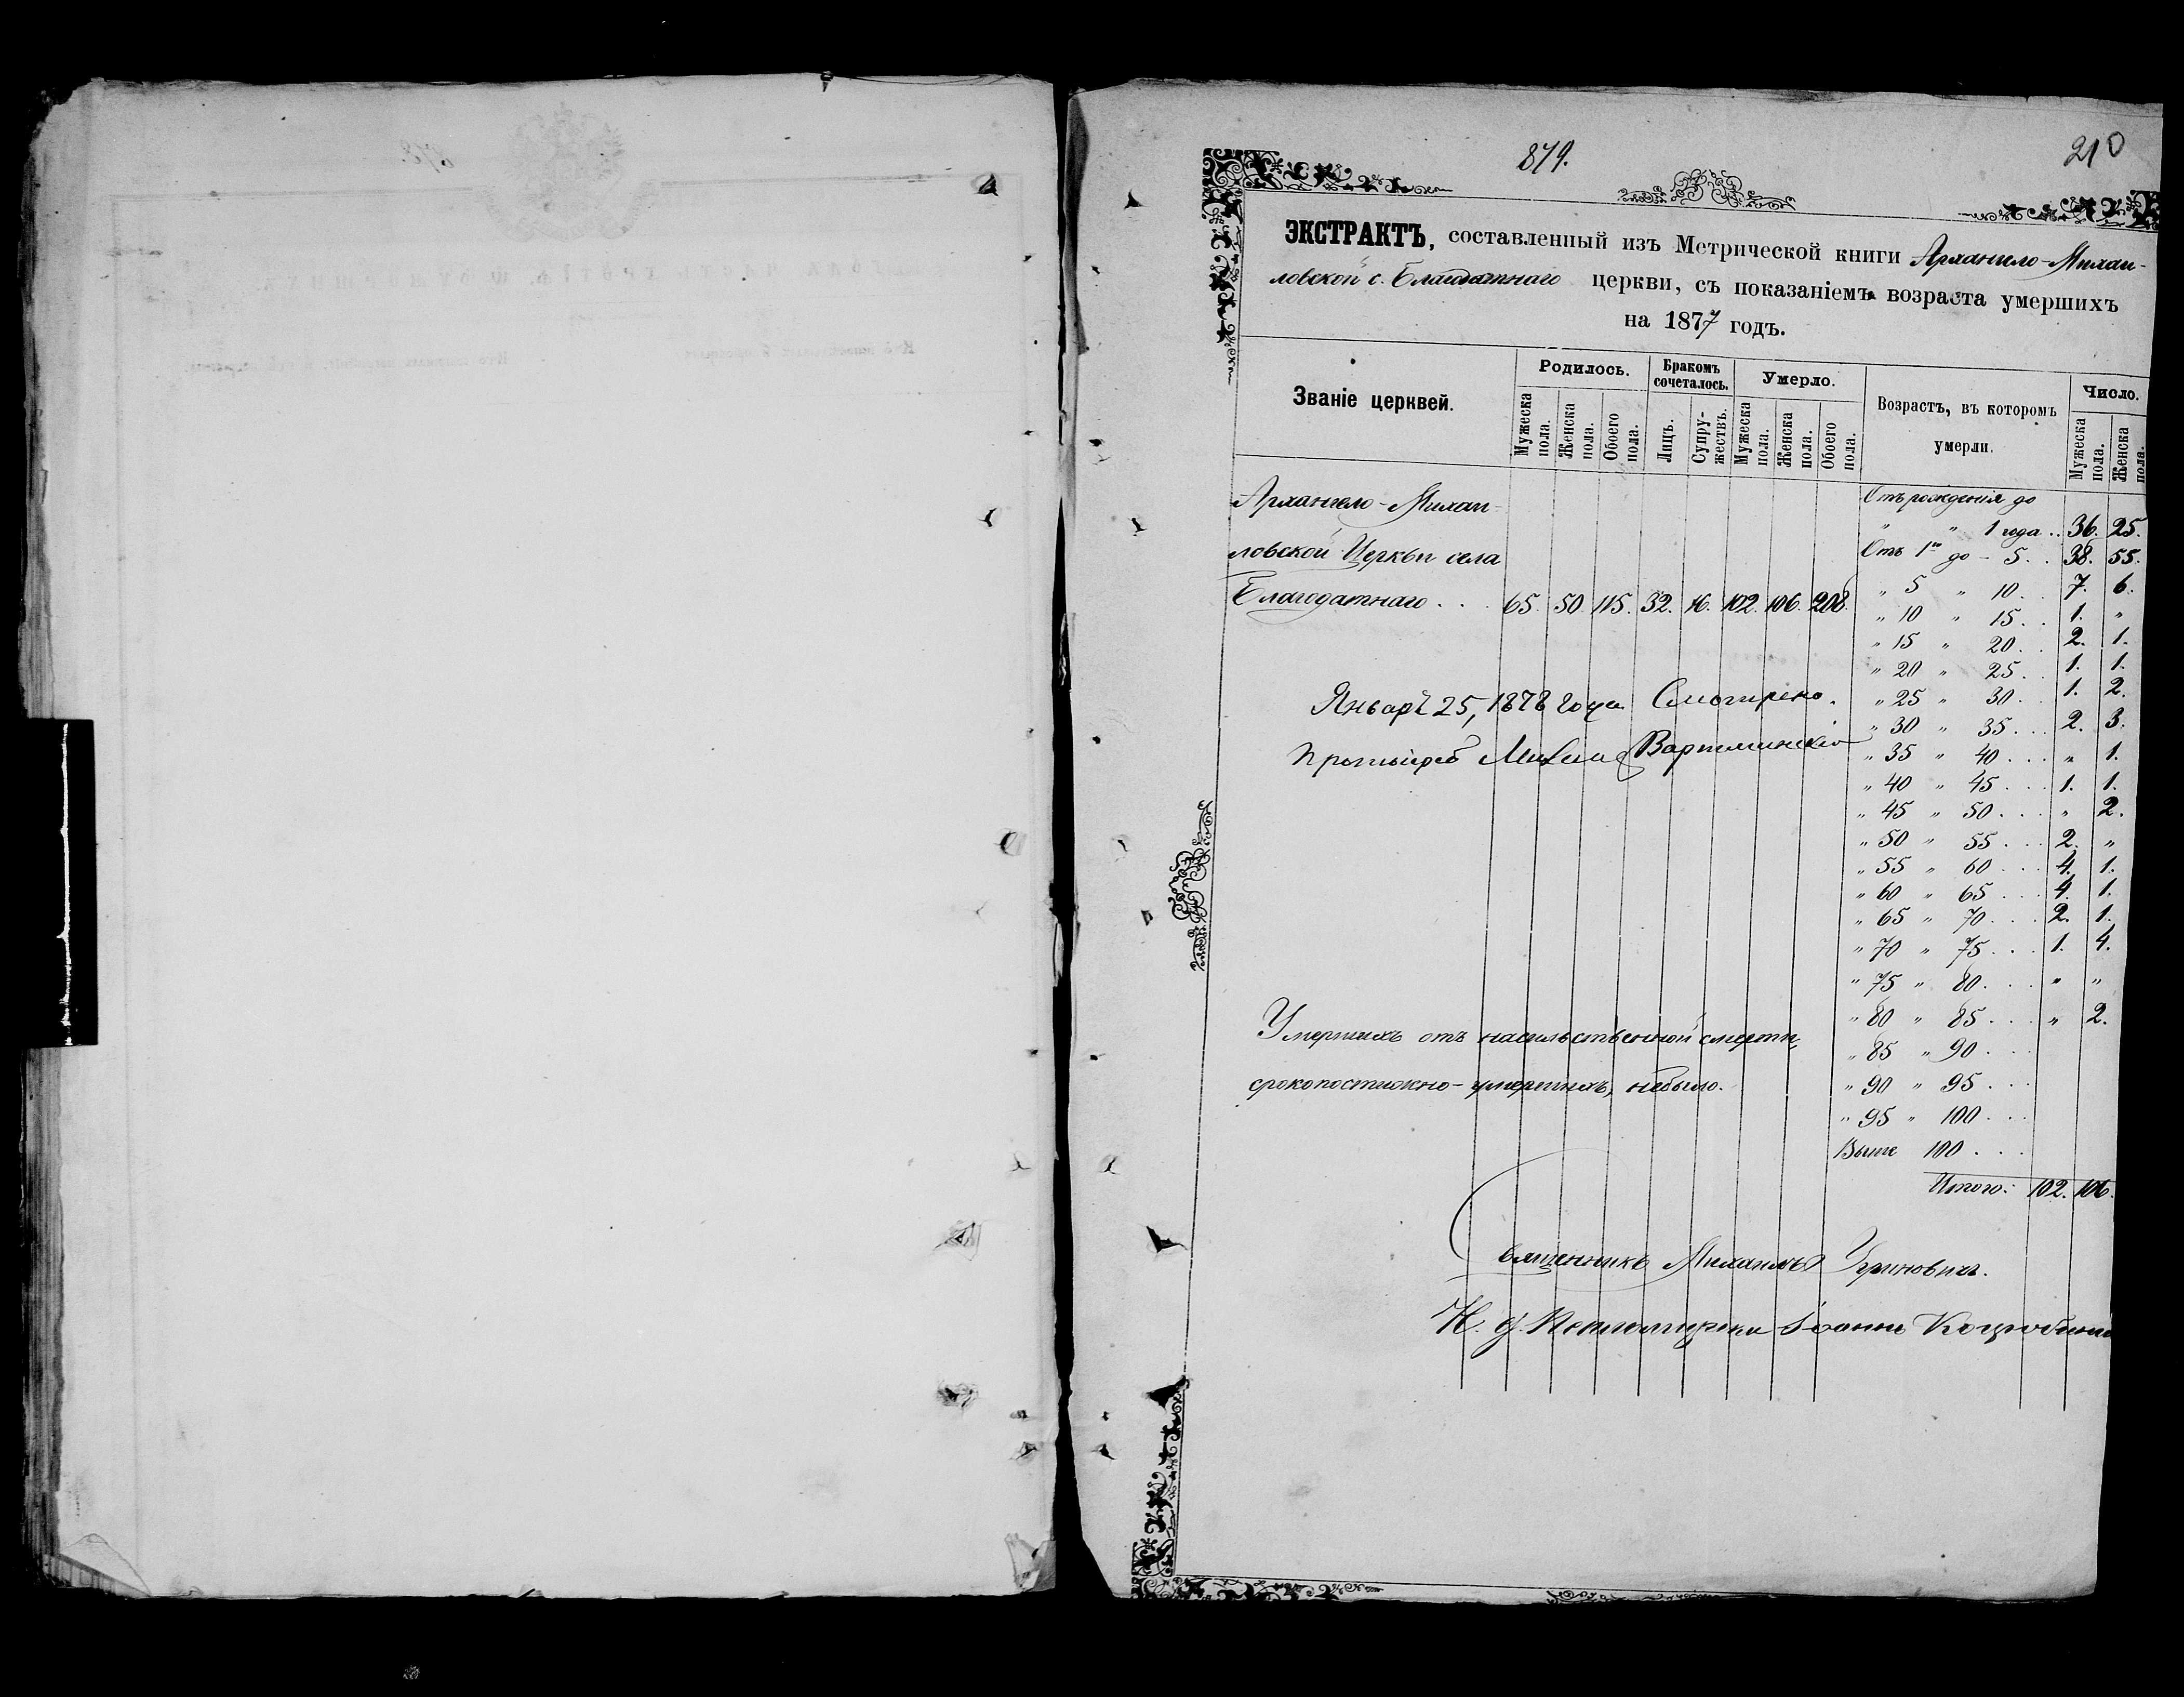 879.
210
ЭКСТРАКТЪ, составленный изъ Метрической книги Архангело-Михаи-
ловской с. Благодатнаго церкви, съ показаніемъ возраста умершихъ
на 1877 годъ.
Званіе церквей.
Родилось.
Бракомъ сочеталось.
Умерло.
Возрастъ, въ которомъ умерли.
Число.
Мужеска пола.
Женска пола.
Обоего пола.
Лицъ.
Супружествъ.
Мужеска пола.
Женска пола.
Обоего пола.
Мужеска пола.
Женска пола.
Архангело-Михаи-
ловской Церкви села
Благодатнаго . . . 65. 50. 115. 32. 16. 102. 106. 208.
Отъ рождения до
" " 1 года . . 36. 25.
Отъ 1го до - 5 . . 38. 55.
" 5 " 10 . . 7. 6.
" 10 " 15 . . 1. "
" 15 " 20 . . 2. 1.
" 20 " 25 . . 1. 1.
" 25 " 30 . . 1. 2.
" 30 " 35 . . . 2. 3.
" 35 " 40 . . . " 1.
" 40 " 45 . . . 1. 1.
" 45 " 50 . . . " 2.
" 50 " 55 . . . 2. "
" 55 " 60 . . . 4. 1.
" 60 " 65 . . . 4. 1.
" 65 " 70 . . . 2. 1.
" 70 " 75 . . . 1. 4.
" 75 " 80 . . . " "
" 80 " 85 . . . " 2.
" 85 " 90 . . .
" 90 " 95 . . .
" 95 " 100 . . .
Выше 100 . . .
Итого: 102. 106.
Январѣ 25, 1878 года Смотрено.
Протоіерей
Умершихъ отъ насильственной смерти,
скоропостижно-умершихъ, небыло.
Священникъ Михаилъ Угриновичъ.
И. д. Псаломщика Іоаннъ